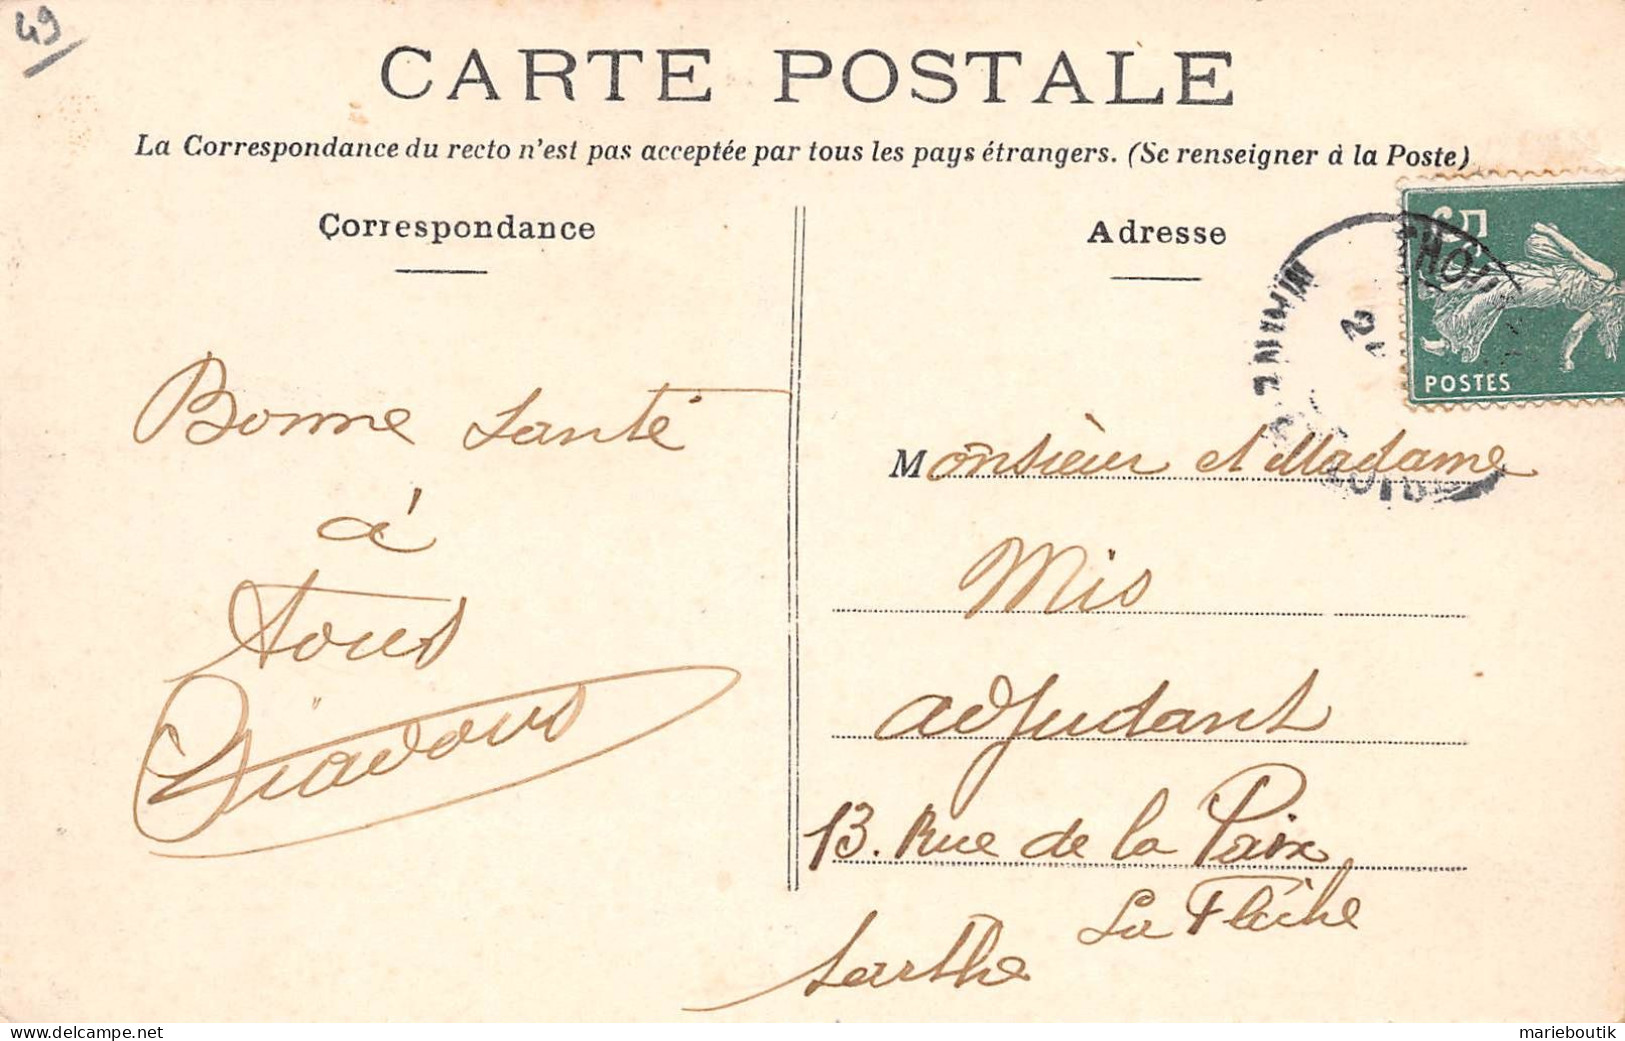 49
CARTE POSTALE
La Correspondance du recto n'est pas acceptée par tous les pays étrangers. (Se renseigner à la Poste)
Correspondance
Adresse
POSTES
Bonne Santé
à
tous
Monsieur et Madame
Mis
adjudant
13. Rue de la Paix
La Flèche
Sarthe
marieboutik